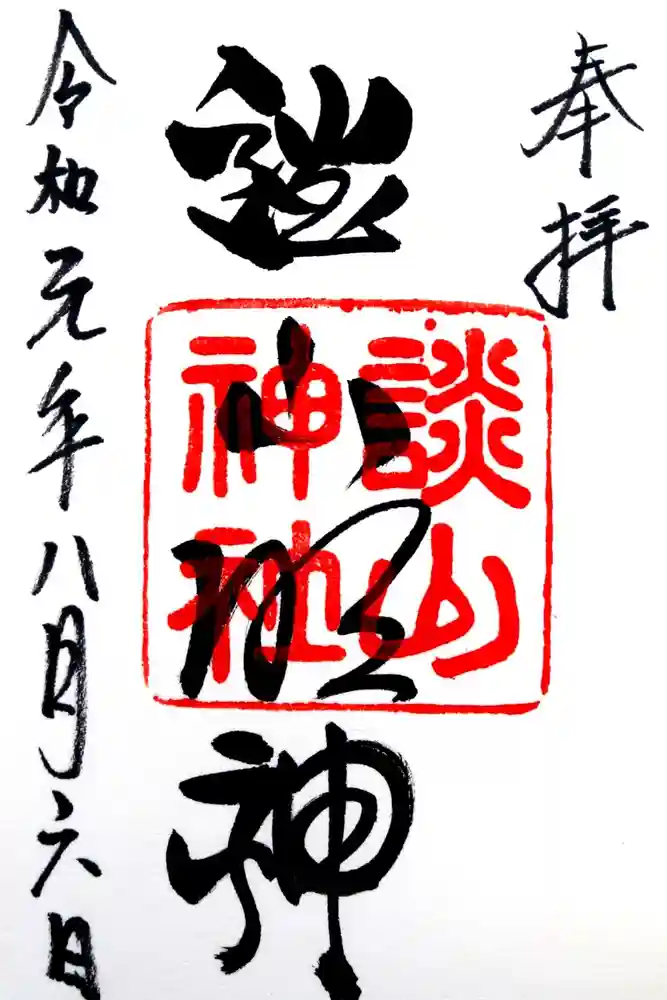 奉拝
明神
談山
神社
令和元年八月六日